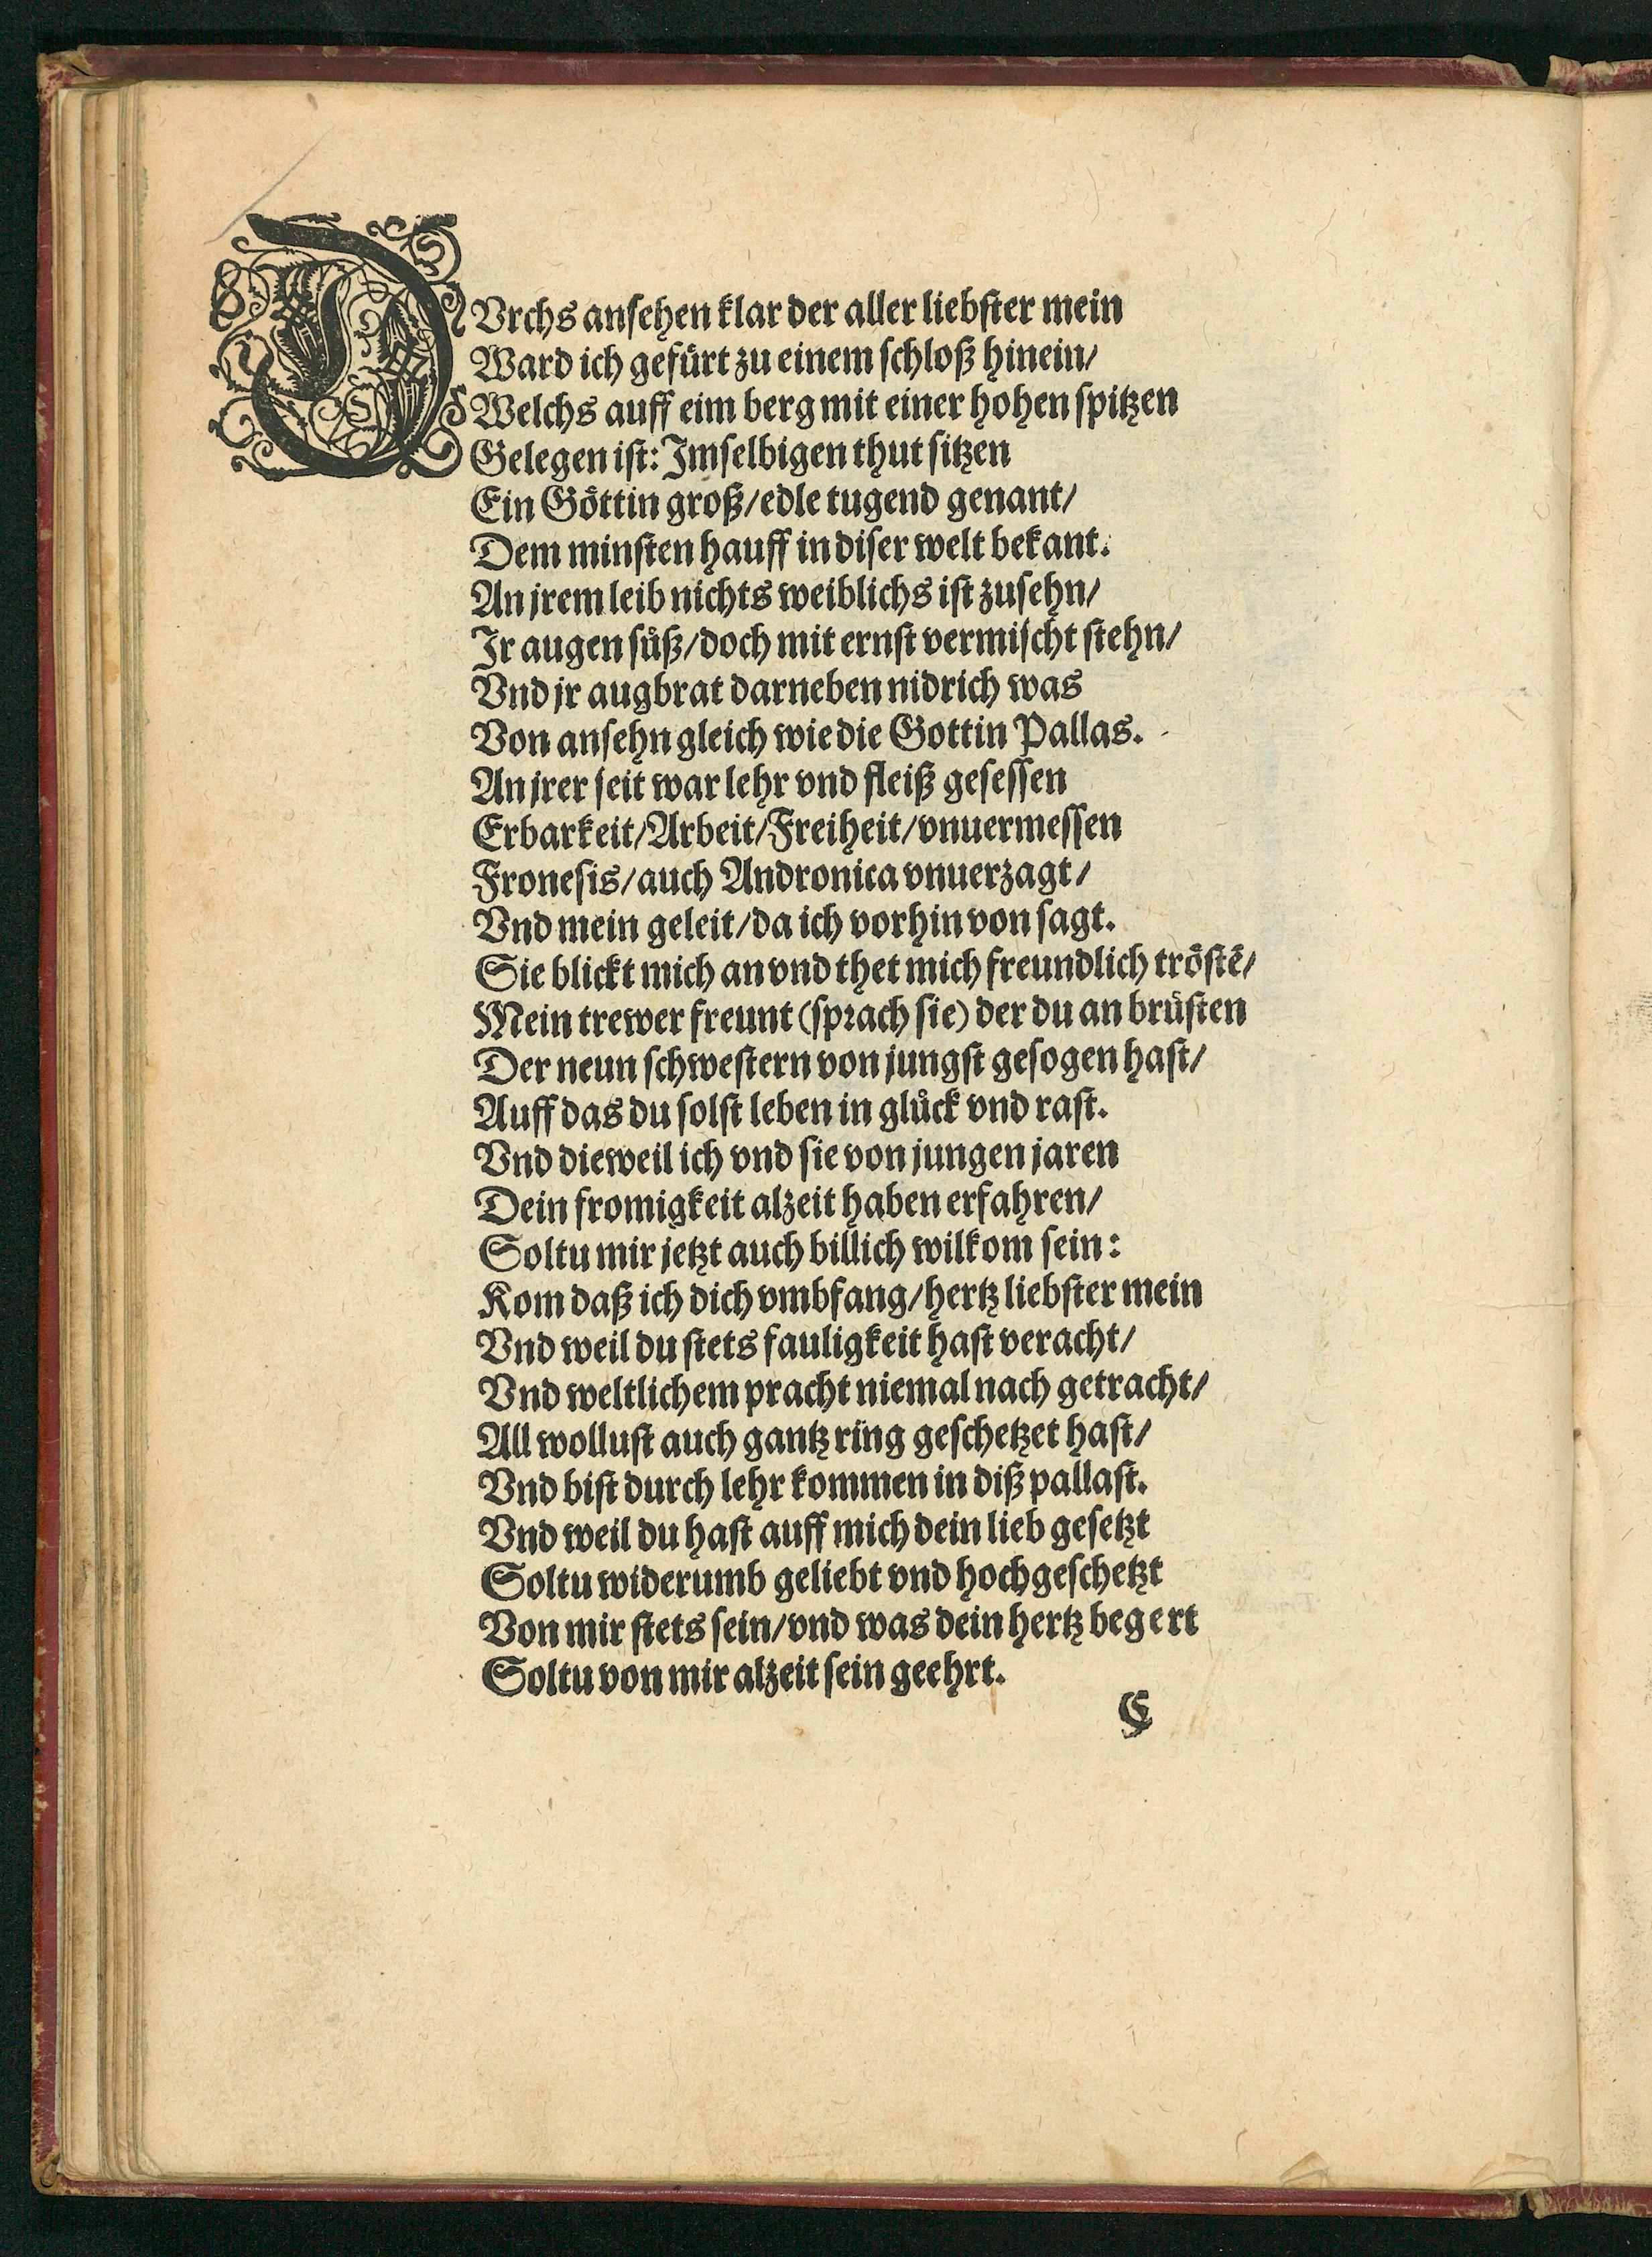 DVrchs ansehen klar der aller liebster mein
Ward ich gefürt zu einem schloß hinein/
Welchs auff eim berg mit einer hohen spitzen
Gelegen ist: Imselbigen thut sitzen
Ein Göttin groß/edle tugend genant/
Dem minsten hauff in diser welt bekant.
An jrem leib nichts weiblichs ist zusehn/
Ir augen süß/doch mit ernst vermischt stehn/
Vnd jr augbrat darneben nidrich was
Von ansehn gleich wie die Gottin Pallas.
An jrer seit war lehr vnd fleiß gesessen
Erbarkeit/Arbeit/Freiheit/vnuermessen
Fronesis/auch Andronica vnuerzagt/
Vnd mein geleit/da ich vorhin von sagt.
Sie blickt mich an vnd thet mich freundlich tröstē/
Mein trewer freunt (sprach sie) der du an brüsten
Der neun schwestern von jungst gesogen hast/
Auff das du solst leben in glück vnd rast.
Vnd dieweil ich vnd sie von jungen jaren
Dein fromigkeit alzeit haben erfahren/
Soltu mir jetzt auch billich wilkom sein:
Kom daß ich dich vmbfang/hertz liebster mein
Vnd weil du stets fauligkeit hast veracht/
Vnd weltlichem pracht niemal nach getracht/
All wollust auch gantz ring geschetzet hast/
Vnd bist durch lehr kommen in diß pallast.
Vnd weil du hast auff mich dein lieb gesetzt
Soltu widerumb geliebt vnd hochgeschetzt
Von mir stets sein/vnd was dein hertz begert
Soltu von mir alzeit sein geehrt.
C